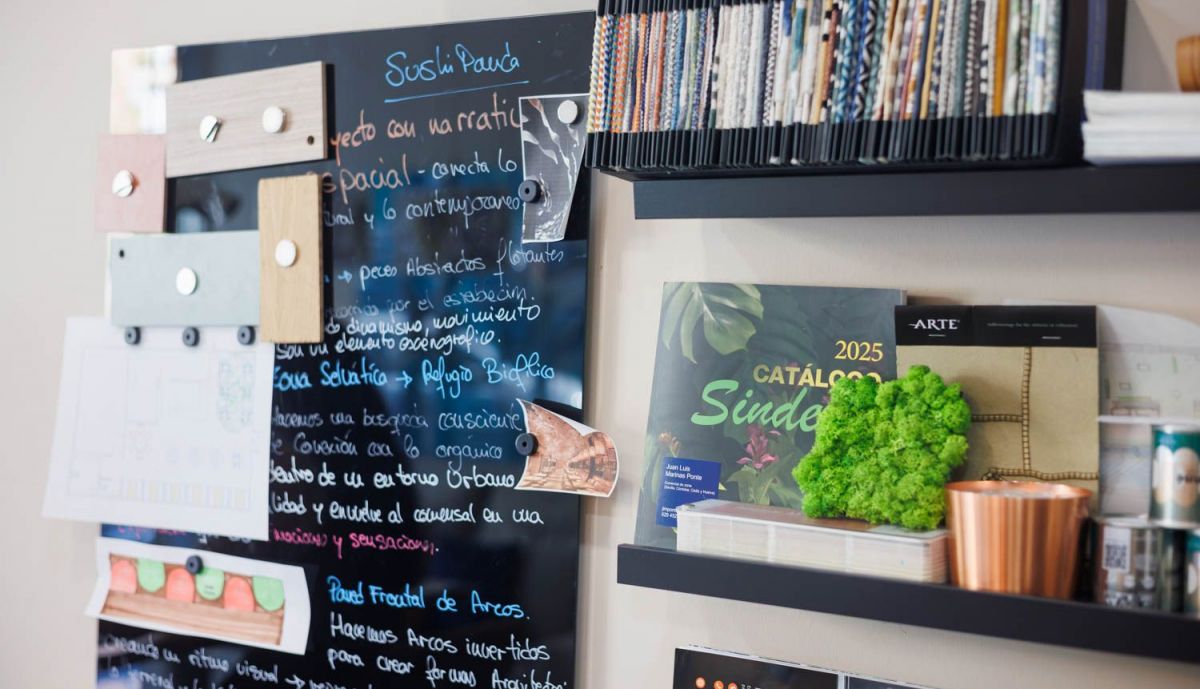 Sushi Panda
yecto con narrativ
spacial - conecta lo
ural y lo contemporaneo
→ peces Abstractos flotantes
por el establecim.
do dinamismo, movimiento
son un elemento escénografico.
Zona Selvática → Refugio Biofilico
Hacemos una busqueda consciente
de conexión con lo orgánico
dentro de un entorno Urbano
lidad y envuelve al comensal en una
mociones y sensaciones.
Pared Frontal de Arcos.
Hacemos Arcos invertidos
para crear formas Arquitec
creando un ritmo visual →
2025
CATÁLOGO
Sinde
Juan Luis
Marinas Ponte
ARTE